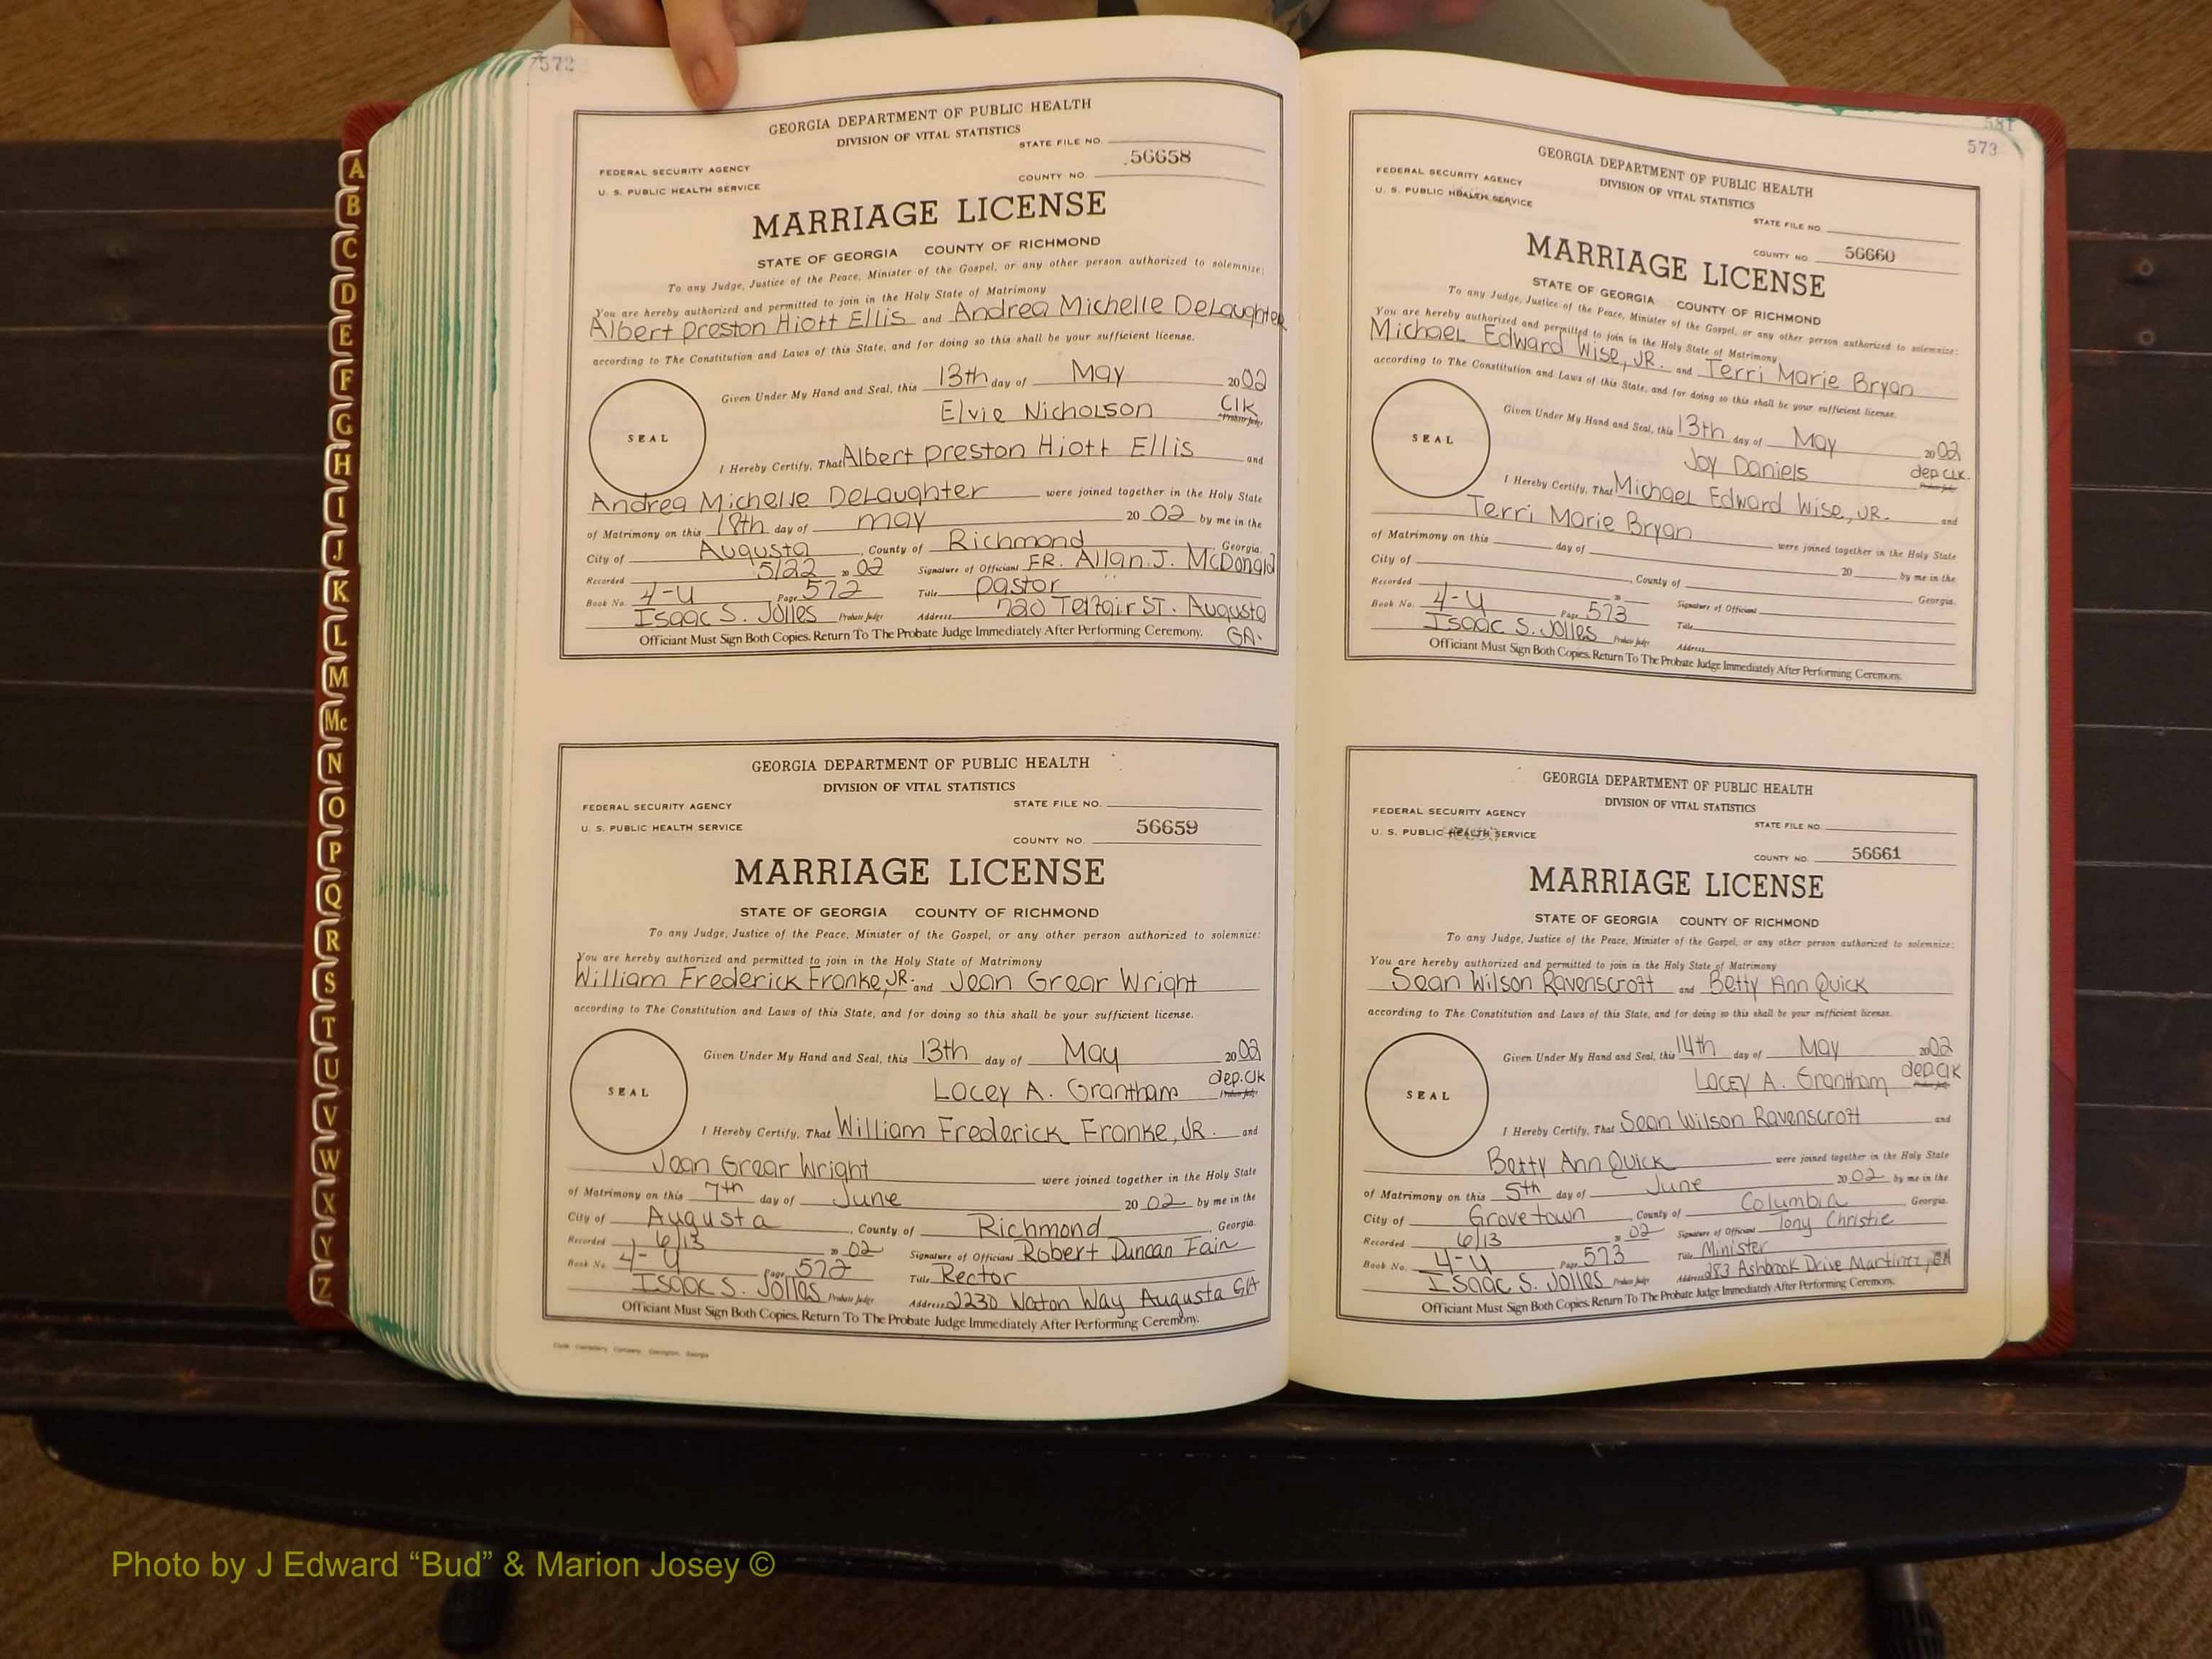 572
GEORGIA DEPARTMENT OF PUBLIC HEALTH
DIVISION OF VITAL STATISTICS
STATE FILE NO.
FEDERAL SECURITY AGENCY
56658
U. S. PUBLIC HEALTH SERVICE
COUNTY NO.
MARRIAGE LICENSE
STATE OF GEORGIA COUNTY OF RICHMOND
To any Judge, Justice of the Peace, Minister of the Gospel, or any other person authorized to solemnize:
You are hereby authorized and permitted to join in the Holy State of Matrimony
Albert Preston Hiott Ellis and Andrea Michelle DeLaughter
according to The Constitution and Laws of this State, and for doing so this shall be your sufficient license.
Given Under My Hand and Seal, this 13th day of May 2002
Elvie Nicholson Clk
Probate Judge
SEAL
I Hereby Certify, That Albert Preston Hiott Ellis and
Andrea Michelle DeLaughter were joined together in the Holy State
of Matrimony on this 18th day of may 20 02 by me in the
City of Augusta, County of Richmond, Georgia.
Recorded 5/22 20 02 Signature of Official FR. Allan J. McDonald
Book No. 4-U Page 572 Title Pastor
Isaac S. Jolles Probate Judge Address 720 Telfair ST. Augusta
GA.
Officiant Must Sign Both Copies. Return To The Probate Judge Immediately After Performing Ceremony.
GEORGIA DEPARTMENT OF PUBLIC HEALTH
DIVISION OF VITAL STATISTICS
FEDERAL SECURITY AGENCY STATE FILE NO.
U. S. PUBLIC HEALTH SERVICE 56659
COUNTY NO.
MARRIAGE LICENSE
STATE OF GEORGIA COUNTY OF RICHMOND
To any Judge, Justice of the Peace, Minister of the Gospel, or any other person authorized to solemnize:
You are hereby authorized and permitted to join in the Holy State of Matrimony
William Frederick Franke, JR. and Jean Grear Wright
according to The Constitution and Laws of this State, and for doing so this shall be your sufficient license.
Given Under My Hand and Seal, this 13th day of May 2002
Lacey A. Grantham dep. Clk
Probate Judge
SEAL
I Hereby Certify, That William Frederick Franke, JR. and
Jean Grear Wright were joined together in the Holy State
of Matrimony on this 7th day of June 20 02 by me in the
City of Augusta, County of Richmond, Georgia.
Recorded 6/13 20 02 Signature of Official Robert Duncan Fain
Book No. 4-U Page 572 Title Rector
Isaac S. Jolles Probate Judge Address 2230 Walton Way Augusta GA
Officiant Must Sign Both Copies. Return To The Probate Judge Immediately After Performing Ceremony.
581
573
GEORGIA DEPARTMENT OF PUBLIC HEALTH
DIVISION OF VITAL STATISTICS
FEDERAL SECURITY AGENCY
U. S. PUBLIC HEALTH SERVICE
STATE FILE NO.
COUNTY NO. 56660
MARRIAGE LICENSE
STATE OF GEORGIA COUNTY OF RICHMOND
To any Judge, Justice of the Peace, Minister of the Gospel, or any other person authorized to solemnize:
You are hereby authorized and permitted to join in the Holy State of Matrimony
Michael Edward Wise, JR. and Terri Marie Bryan
according to The Constitution and Laws of this State, and for doing so this shall be your sufficient license.
Given Under My Hand and Seal, this 13th day of May 2002
Joy Daniels dep CLK.
Probate Judge
SEAL
I Hereby Certify, That Michael Edward Wise, JR. and
Terri Marie Bryan were joined together in the Holy State
of Matrimony on this day of 20 by me in the
City of , County of Georgia.
Recorded 20 Signature of Official
Book No. 4-U Page 573 Title
Isaac S. Jolles Probate Judge Address
Officiant Must Sign Both Copies. Return To The Probate Judge Immediately After Performing Ceremony.
GEORGIA DEPARTMENT OF PUBLIC HEALTH
DIVISION OF VITAL STATISTICS
FEDERAL SECURITY AGENCY STATE FILE NO.
U. S. PUBLIC HEALTH SERVICE
COUNTY NO. 56661
MARRIAGE LICENSE
STATE OF GEORGIA COUNTY OF RICHMOND
To any Judge, Justice of the Peace, Minister of the Gospel, or any other person authorized to solemnize:
You are hereby authorized and permitted to join in the Holy State of Matrimony
Sean Wilson Ravenscroft and Betty Ann Quick
according to The Constitution and Laws of this State, and for doing so this shall be your sufficient license.
Given Under My Hand and Seal, this 14th day of May 2002
Lacey A. Grantham dep. Clk
Probate Judge
SEAL
I Hereby Certify, That Sean Wilson Ravenscroft and
Betty Ann Quick were joined together in the Holy State
of Matrimony on this 5th day of June 20 02 by me in the
City of Grovetown, County of Columbia, Georgia.
Recorded 6/13 20 02 Signature of Official Tony Christie
Book No. 4-U Page 573 Title Minister
Isaac S. Jolles Probate Judge Address 283 Ashbrook Drive Martinez, GA
Officiant Must Sign Both Copies. Return To The Probate Judge Immediately After Performing Ceremony.
A
B
C
D
E
F
G
H
I
J
K
L
M
Mc
N
O
P
Q
R
S
T
U
V
W
X
Y
Z
Photo by J Edward “Bud” & Marion Josey ©